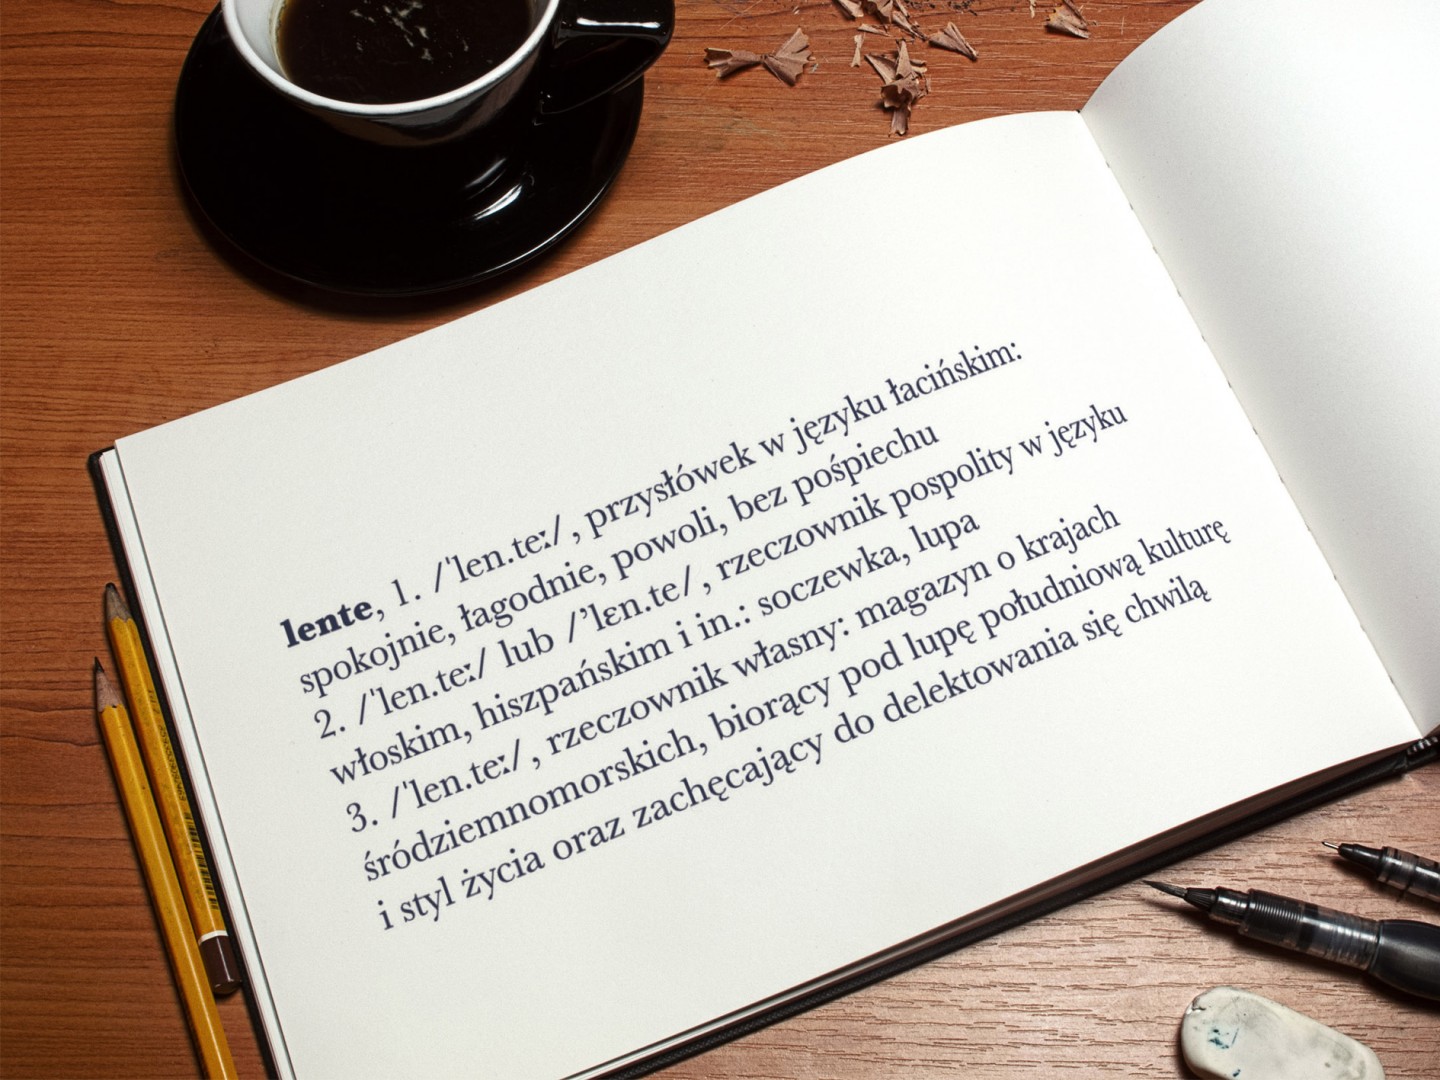 lente, 1. /ˈlen.teː/ , przysłówek w języku łacińskim:
spokojnie, łagodnie, powoli, bez pośpiechu
2. /ˈlen.teː/ lub /’lɛn.te/ , rzeczownik pospolity w języku
włoskim, hiszpańskim i in.: soczewka, lupa
3. /ˈlen.teː/ , rzeczownik własny: magazyn o krajach
śródziemnomorskich, biorący pod lupę południową kulturę
i styl życia oraz zachęcający do delektowania się chwilą